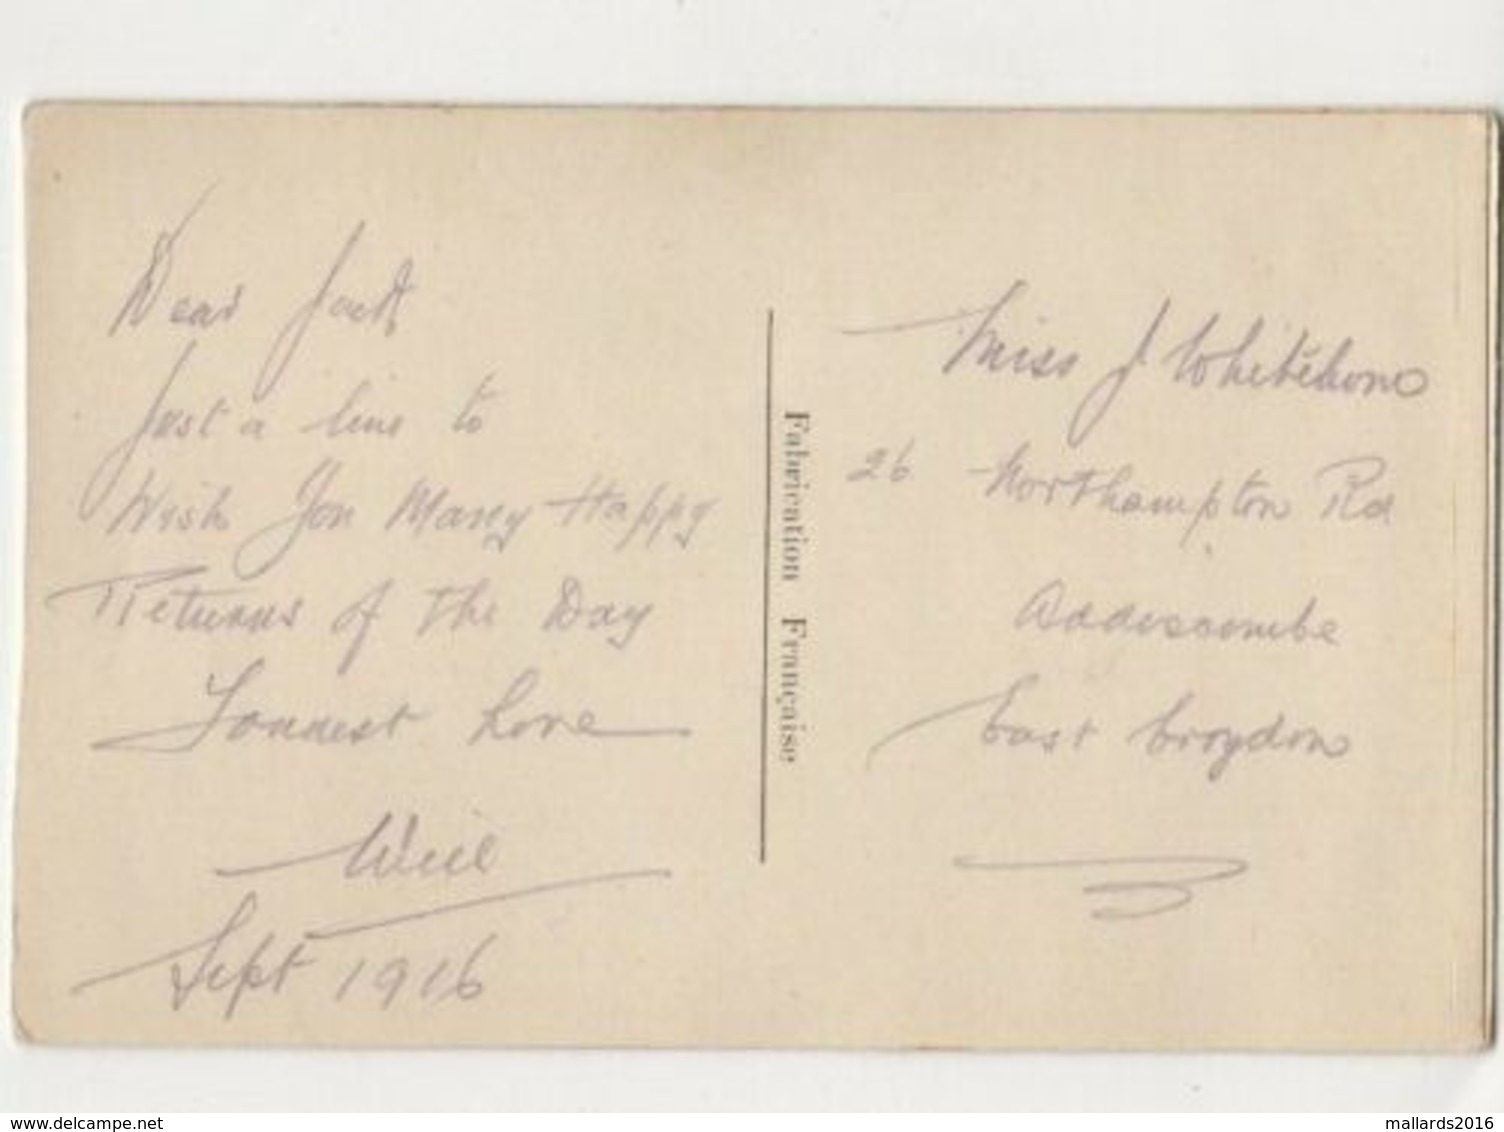 Dear Jack
Just a line to
Wish You Many Happy
Returns of the Day
Fondest Love
Will
Sept 1916
Fabrication Française
Miss J. Whitehorn
26 Northampton Rd
Addiscombe
East Croydon
mallards2016